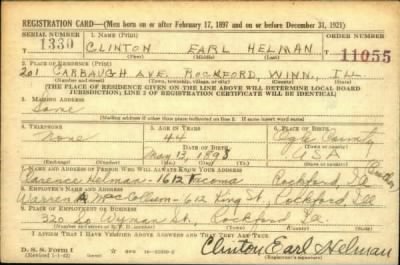 REGISTRATION CARD—(Men born on or after February 17, 1897 and on or before December 31, 1921)
SERIAL NUMBER 1. NAME (Print) ORDER NUMBER
1330 CLINTON EARL HELMAN 11055
(First) (Middle) (Last)
2. PLACE OF RESIDENCE (Print)
201 CARBAUGH AVE. ROCKFORD, WINN., ILL
(Number and street) (Town, township, village, or city) (County) (State)
[THE PLACE OF RESIDENCE GIVEN ON THE LINE ABOVE WILL DETERMINE LOCAL BOARD
JURISDICTION; LINE 2 OF REGISTRATION CERTIFICATE WILL BE IDENTICAL]
3. MAILING ADDRESS
Same
[Mailing address if other than place indicated on line 2. If same insert word same]
4. TELEPHONE 5. AGE IN YEARS 6. PLACE OF BIRTH
None 44 Ogle County
DATE OF BIRTH
May 13, 1898 USA
7. NAME AND ADDRESS OF PERSON WHO WILL ALWAYS KNOW YOUR ADDRESS
Clarence Helman - 1612 Tacoma Rockford, Ill (Brother)
8. EMPLOYER'S NAME AND ADDRESS
Warren A McCollison - 612 King St, Rockford, Ill
9. PLACE OF EMPLOYMENT OR BUSINESS
320 So Wyman St. Rockford Ill.
I AFFIRM THAT I HAVE VERIFIED ABOVE ANSWERS AND THAT THEY ARE TRUE.
D. S. S. Form 1
(Revised 1-1-42)
Clinton Earl Helman
(Registrant's signature)